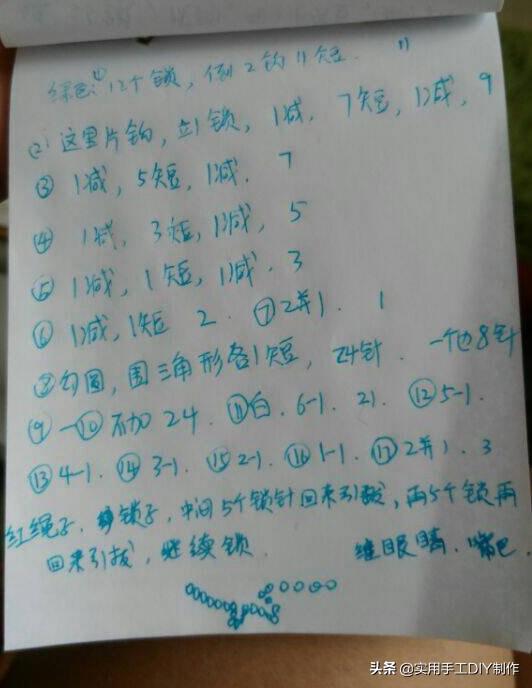 绿色:① 12个锁,倒2钩11短. 11
(2) 这里片钩,立1锁,1减,7短,1减,9
③ 1减,5短,1减. 7
④ 1减,3短,1减,5
⑤ 1减,1短,1减.3
⑥ 1减,1短 2. ⑦2并1. 1
⑧勾圆,围三角形各1短,24针. 一个边8针
⑨—⑩不加24. ⑪白.6-1.21. ⑫5-1.
⑬4-1.⑭3-1.⑮2-1.⑯1-1.⑰2并1.3
红绳子.锁子,中间5个锁针回来引拔,再5个锁再
回来引拔,继续锁. 缝眼睛.嘴巴
头条@实用手工DIY制作